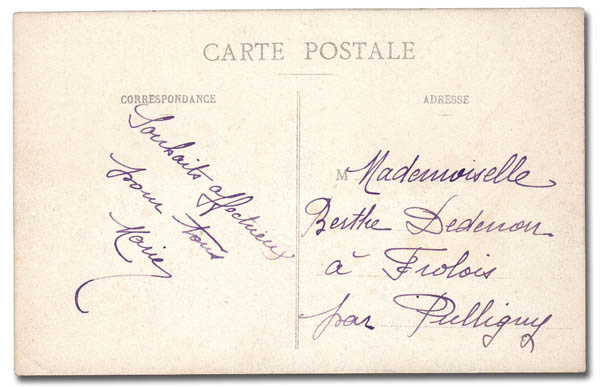 CARTE POSTALE
CORRESPONDANCE
Souhaits affectueux
pour tous
Marie
ADRESSE
M Mademoiselle
Berthe Dedenon
à Frolois
par Pulligny